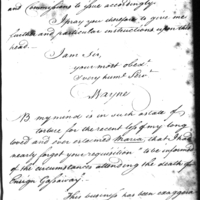 and Commissions to you accordingly.
I pray you Sir to give me
further and particular instructions upon this
head.
I am Sir,
your most obed.t
& very hum.e Ser.t
Wayne
My mind is in such a state of
torture for the recent loss of my long
loved and ever esteemed Maria, that I had
nearly forgot your requisition "to be informed
of the circumstances attending the death of
Ensign Gassaway."
This business has been exaggera